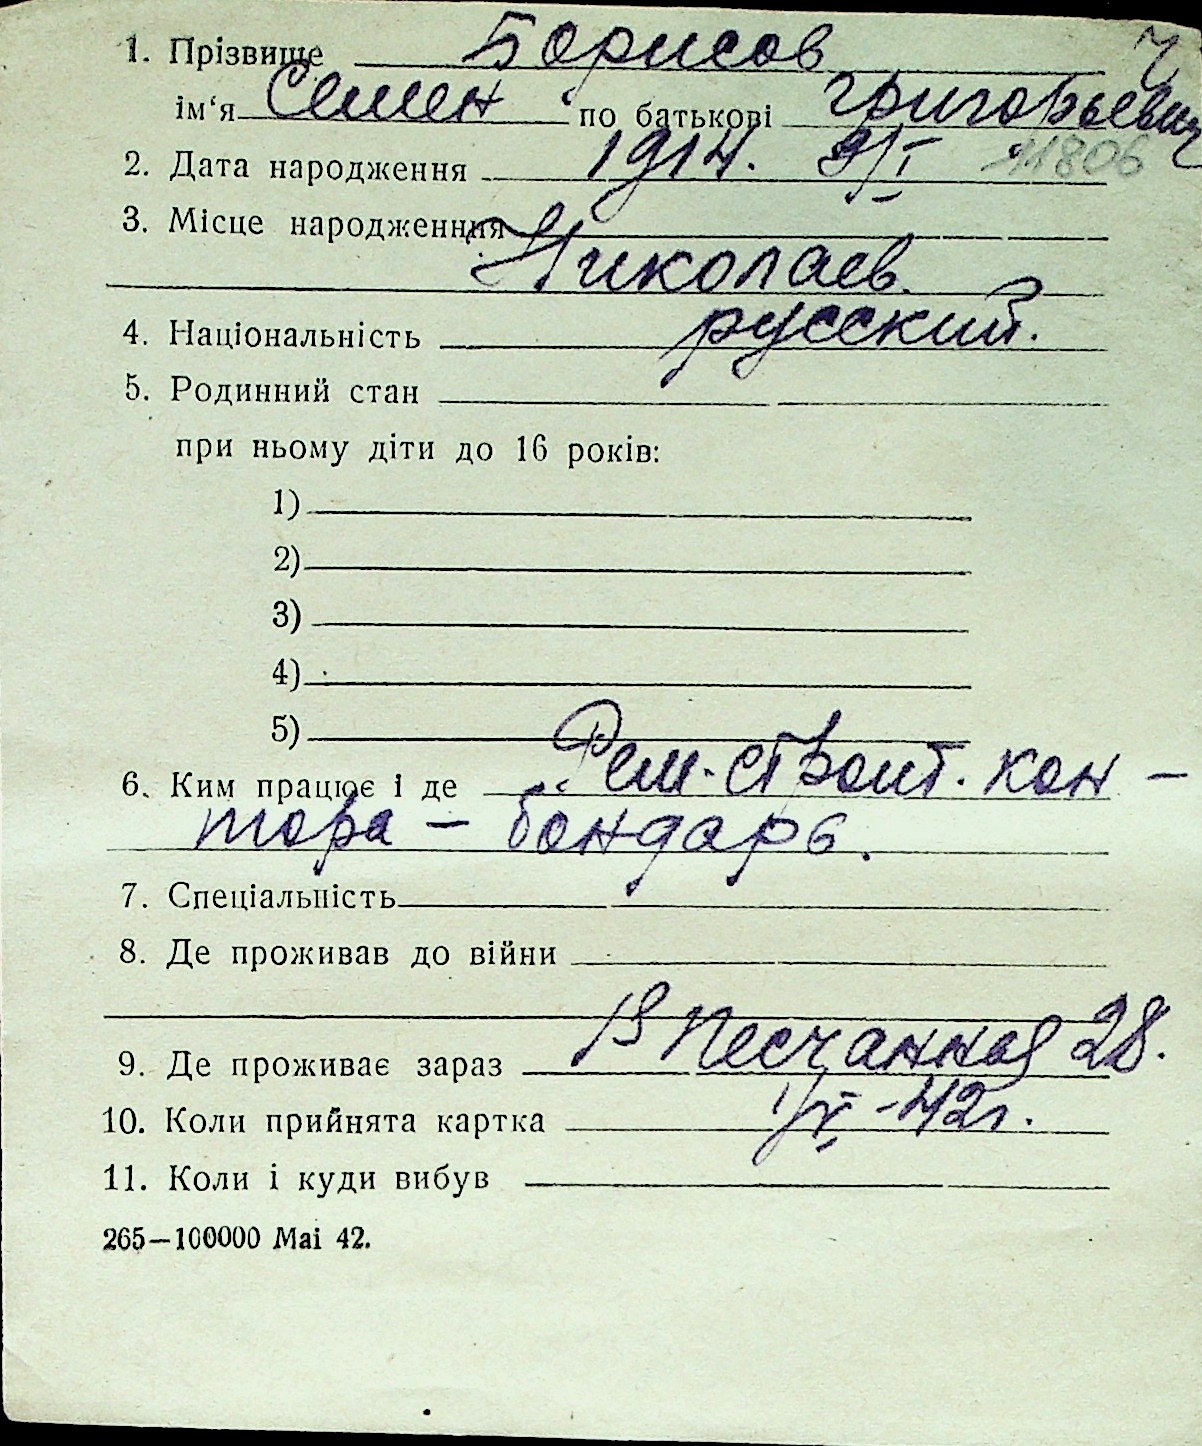 1. Прізвище Борисов Ч
ім‘я Семен по батькові Григорьевич
2. Дата народження 1914. 9/I 11806
3. Місце народженння
Николаев.
4. Національність русский.
5. Родинний стан
при ньому діти до 16 років:
1)
2)
3)
4)
5)
6. Ким працює і де Рем-строит. кон-
тора - бондарь.
7. Спеціальність
8. Де проживав до війни
9. Де проживає зараз Песчанная 28.
10. Коли прийнята картка 1/V-42г.
11. Коли і куди вибув
265—100000 Mai 42.